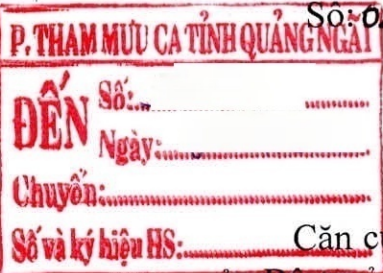 Số: 0
P. THAM MƯU CA TỈNH QUẢNG NGÃI
ĐẾN
Số:
Ngày:
Chuyển:
Số và ký hiệu HS:
Căn cứ